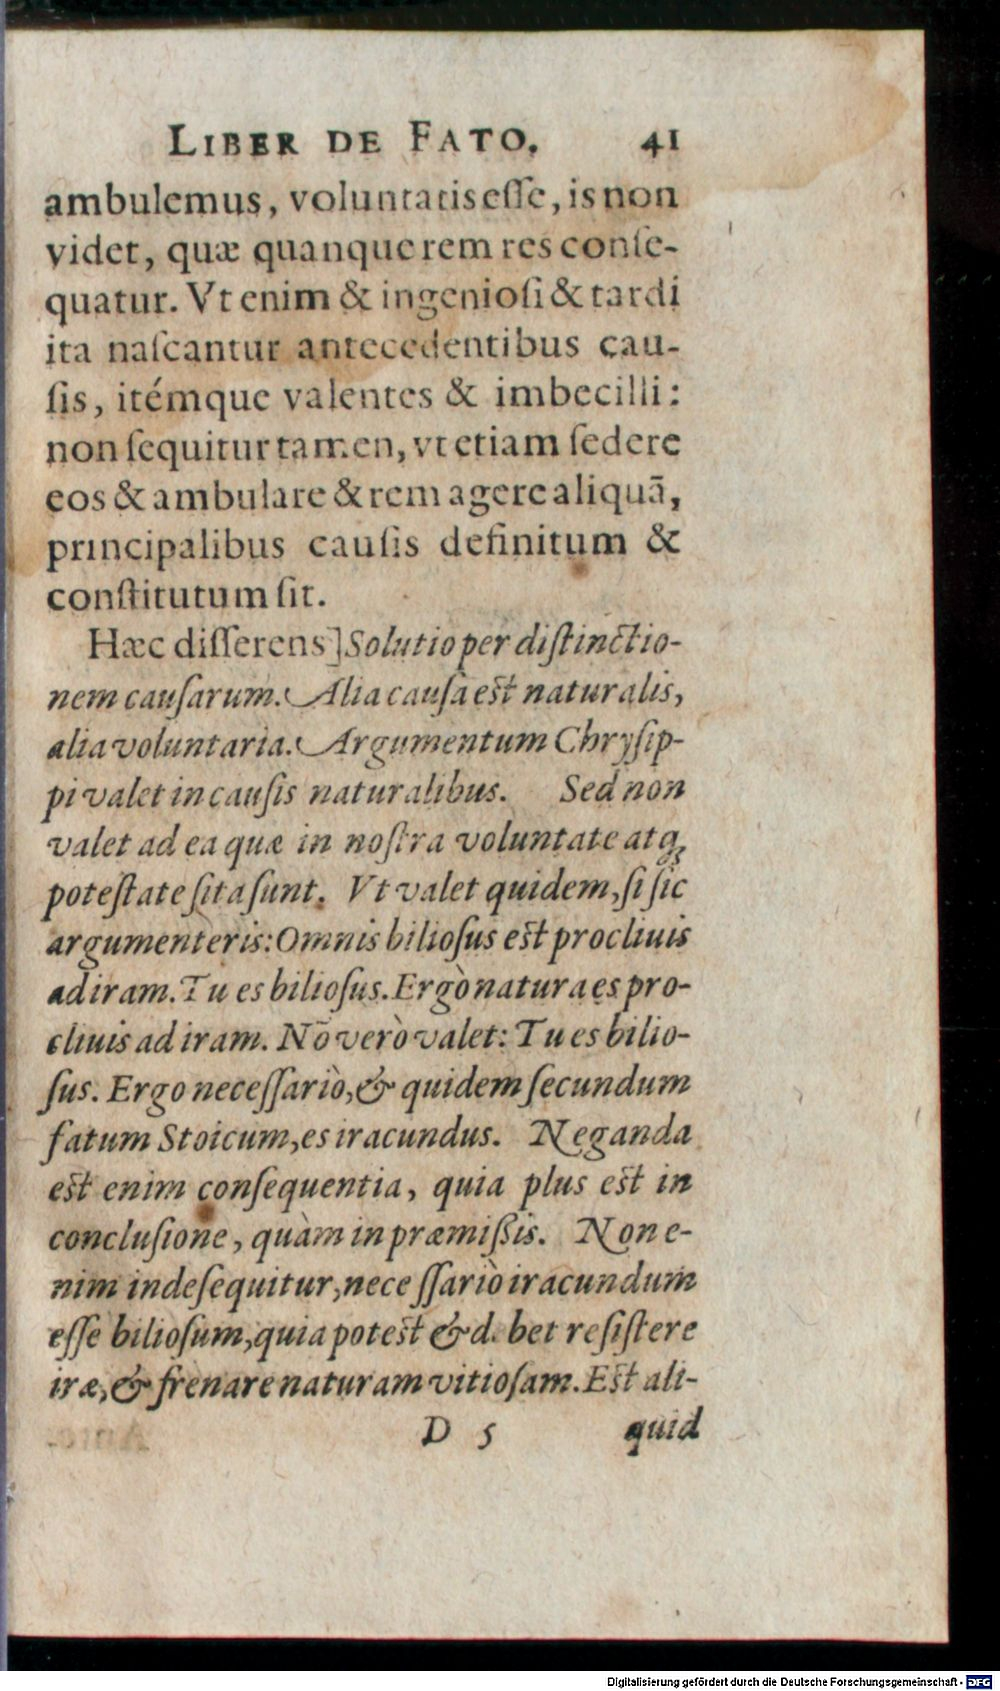 LIBER DE FATO. 41
ambulemus, voluntatis eſſe, is non
videt, quæ quanque rem res conſe-
quatur. Vt enim & ingenioſi & tardi
ita naſcantur antecedentibus cau-
ſis, itémque valentes & imbecilli:
non ſequitur tamen, vt etiam ſedere
eos & ambulare & rem agere aliquā,
principalibus cauſis definitum &
conſtitutum ſit.
Hæc diſſerens] Solutio per diſtinctio-
nem cauſarum. Alia cauſa est naturalis,
alia voluntaria. Argumentum Chryſip-
pi valet in cauſis naturalibus. Sed non
valet ad ea quæ in noſtra voluntate atq;
poteſtate ſita ſunt. Vt valet quidem, ſi ſic
argumenteris: Omnis bilioſus est procliuis
ad iram. Tu es bilioſus. Ergò natura es pro-
cliuis ad iram. Nō verò valet: Tu es bilio-
ſus. Ergo neceſſariò, & quidem ſecundum
fatum Stoicum, es iracundus. Neganda
est enim conſequentia, quia plus est in
concluſione, quàm in præmiſsis. Non e-
nim inde ſequitur, neceſſariò iracundum
eſſe bilioſum, quia potest & d. bet reſiſtere
iræ, & frenare naturam vitioſam. Est ali-
D 5 quid
Digitalisierung gefördert durch die Deutsche Forschungsgemeinschaft - DFG